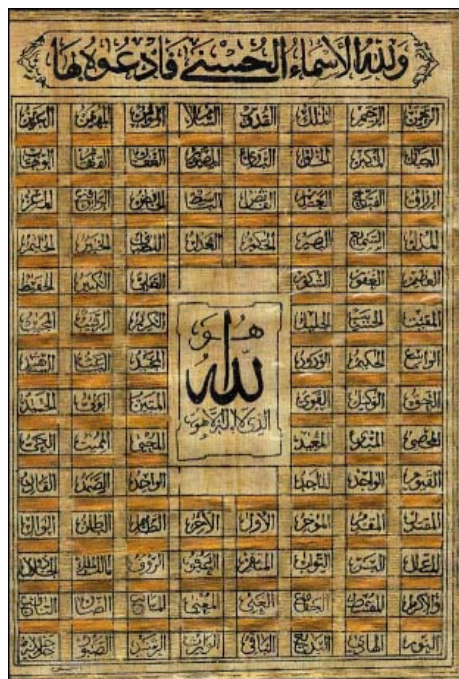 ولله الأسماء الحسنى فادعوه بها
الرحمن الرحيم الملك القدوس السلام المؤمن المهيمن العزيز
الجبار المتكبر الخالق البارئ المصور الغفار القهار الوهاب
الرزاق الفتاح العليم القابض الباسط الخافض الرافع المعز
المذل السميع البصير الحكم العدل اللطيف الخبير الحليم
العظيم الغفور الشكور العلي الكبير الحفيظ
المقيت الحسيب الجليل الكريم الرقيب المجيب
الواسع الحكيم الودود المجيد الباعث الشهيد
الحق الوكيل القوى المتين الولي الحميد
المحصى المبدئ المعيد المحيى المميت الحي
القيوم الواجد الماجد الواحد الصمد القادر
هو
الله
الذي لا إله إلا هو
المقتدر المقدم المؤخر الأول الآخر الظاهر الباطن الوالي
المتعال البر التواب المنتقم العفو الرؤف مالك الملك ذو الجلال
والاكرام المقسط الجامع الغنى المغنى المانع الضار النافع
النور الهادي البديع الباقي الوارث الرشيد الصبور جل جلاله